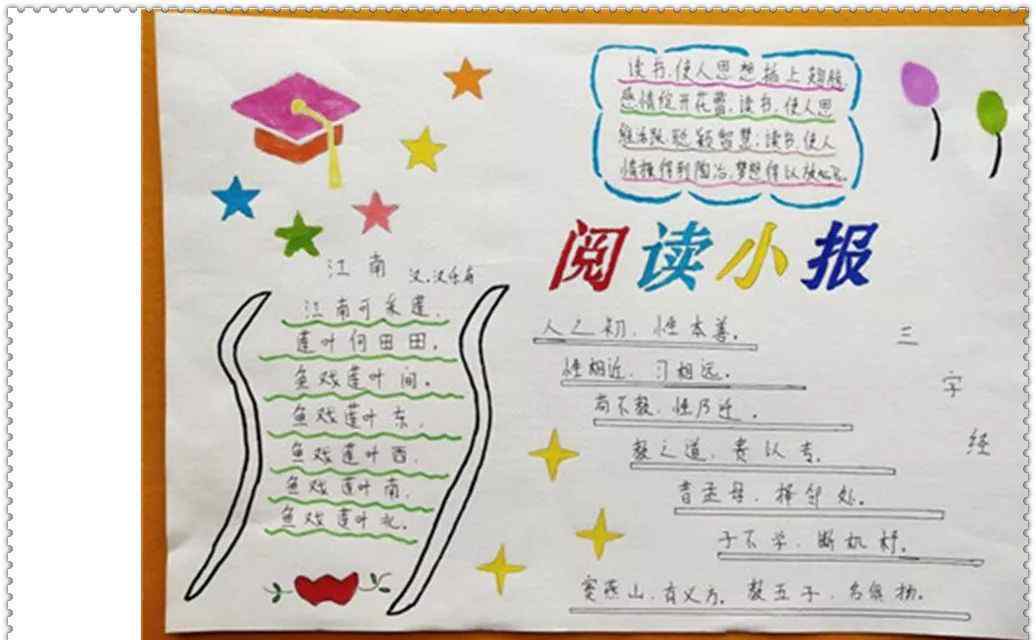 读书,使人思想插上翅膀,
感情绽开花蕾,读书,使人思
维活跃,聪颖智慧;读书,使人
情操得到陶冶,梦想得以放飞。
阅读小报
江南 汉.汉乐府
江南可采莲,
莲叶何田田。
鱼戏莲叶间。
鱼戏莲叶东,
鱼戏莲叶西,
鱼戏莲叶南,
鱼戏莲叶北。
三字经
人之初,性本善。
性相近,习相远。
苟不教,性乃迁。
教之道,贵以专。
昔孟母,择邻处。
子不学,断机杼。
窦燕山,有义方。教五子,名俱扬。